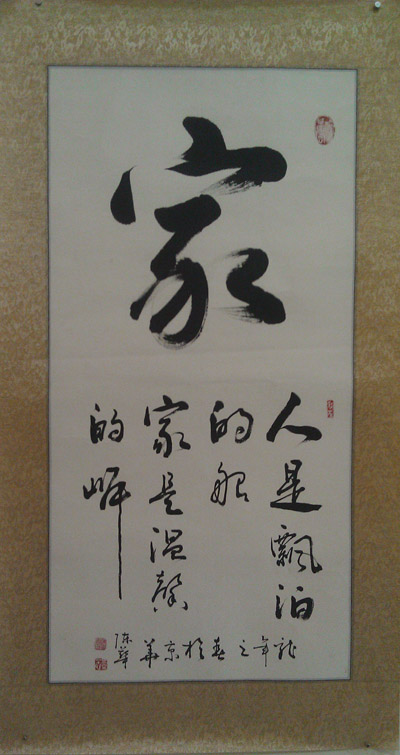 家
人是飘泊
的船
家是温馨
的岸
龙年之春于京华
陈华